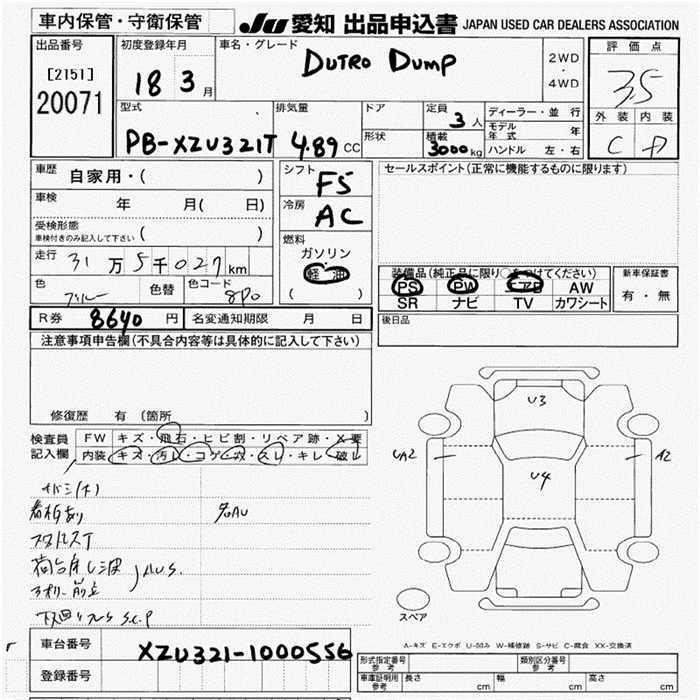 車内保管・守衛保管
JU 愛知 出品申込書 JAPAN USED CAR DEALERS ASSOCIATION
出品番号
[2151]
20071
初度登録年月
18 3 月
車名・グレード
DUTRO DUMP
2WD
・
4WD
評価点
3.5
外装 内装
C D
型式
PB-XZU321T
排気量
4.89 CC
ドア
形状
定員
3 人
積載
3000 kg
ディーラー・並行
モデル年式 年
ハンドル 左・右
車歴
自家用・( )
車検
年 月( 日)
受検形態
車検付きのみ記入して下さい ( )
走行
31 万 5 千 027 km
色
ブルー
色替
色コード
8P0
シフト
F5
冷房
AC
燃料
ガソリン
軽油
( )
セールスポイント(正常に機能するものに限ります)
装備品(純正品に限り○をつけてください)
PS PW エアB AW
SR ナビ TV カワシート
新車保証書
有・無
R券 8640 円
名変通知期限 月 日
後日品
注意事項申告欄(不具合内容等は具体的に記入して下さい)
修復歴 有 (箇所 )
検査員
記入欄
FW キズ・飛石・ヒビ割・リペア跡・X要
内装 キズ・汚レ・コゲ・穴・スレ・キレ・破レ
U3
UA2
A2
U4
スペア
A-キズ E-エクボ U-凹み W-補修跡 S-サビ C-腐食 XX-交換済
車台番号
XZU321-1000556
登録番号
形式指定番号
参考
類別区分番号
参考
車庫証明用
参考
長さ cm
幅 cm
高さ cm